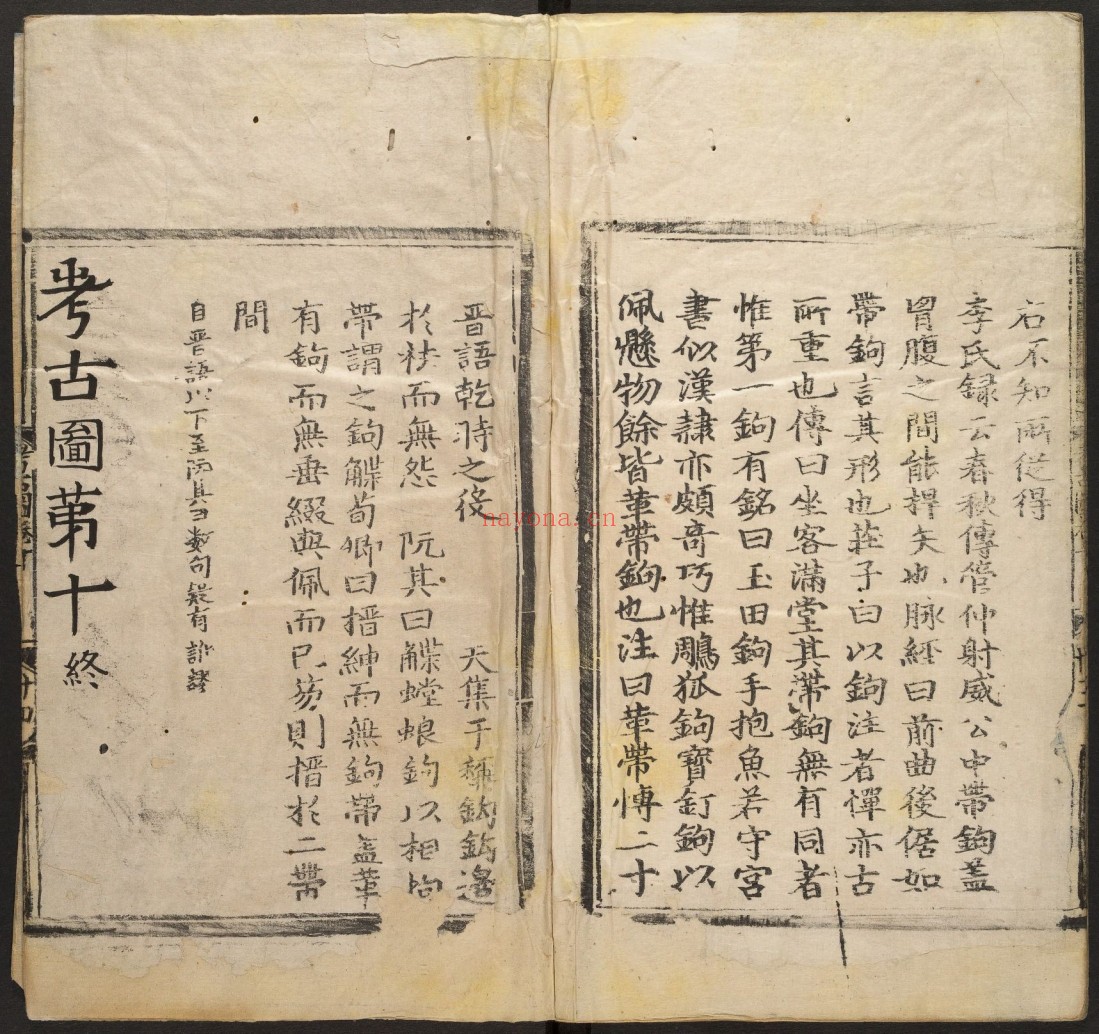 右不知所從得
李氏録云春秋傳管仲射威公中帶鉤蓋
胷腹之間能捍矢也脉經曰前曲後倨如
帶鉤言其形也莊子曰以鉤注者憚亦古
所重也傳曰坐客滿堂其帶鉤無有同者
惟第一鉤有銘曰玉田鉤手抱魚若守宮
書似漢隷亦頗奇巧惟鵰狐鉤寶釘鉤以
佩懸物餘皆革帶鉤也注曰革帶愽二寸
晋語乾時之役 天集于 鉤鉤邊
於袪而無怨 阮其曰䚢螳蜋鉤以相拘
帶謂之鉤䚢荀卿曰搢紳而無鉤帶蓋革
有鉤而無垂綴與佩而已芴則搢於二帶
間
自晋語以下至阮其曰數句疑有訛
考古圖第十終
nayona.cn